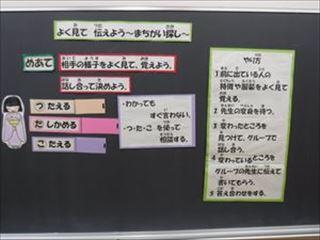 よく見て 伝えよう〜まちがい探し〜
めあて
相手の様子をよく見て、覚えよう。
話し合って決めよう。
つ たえる
だ しかめる
こ たえる
・わかっても
すぐ言わない。
・つ・た・こ を使って
相談する。
やり方
1 前に出ている人の
特徴や服装をよく見て
覚える。
2 先生の変身を待つ。
3 変わったところを
見つけて、グループで
話し合う。
4 変わっているところを
グループの先生に伝えて
書いてもらう。
5 答え合わせをする。